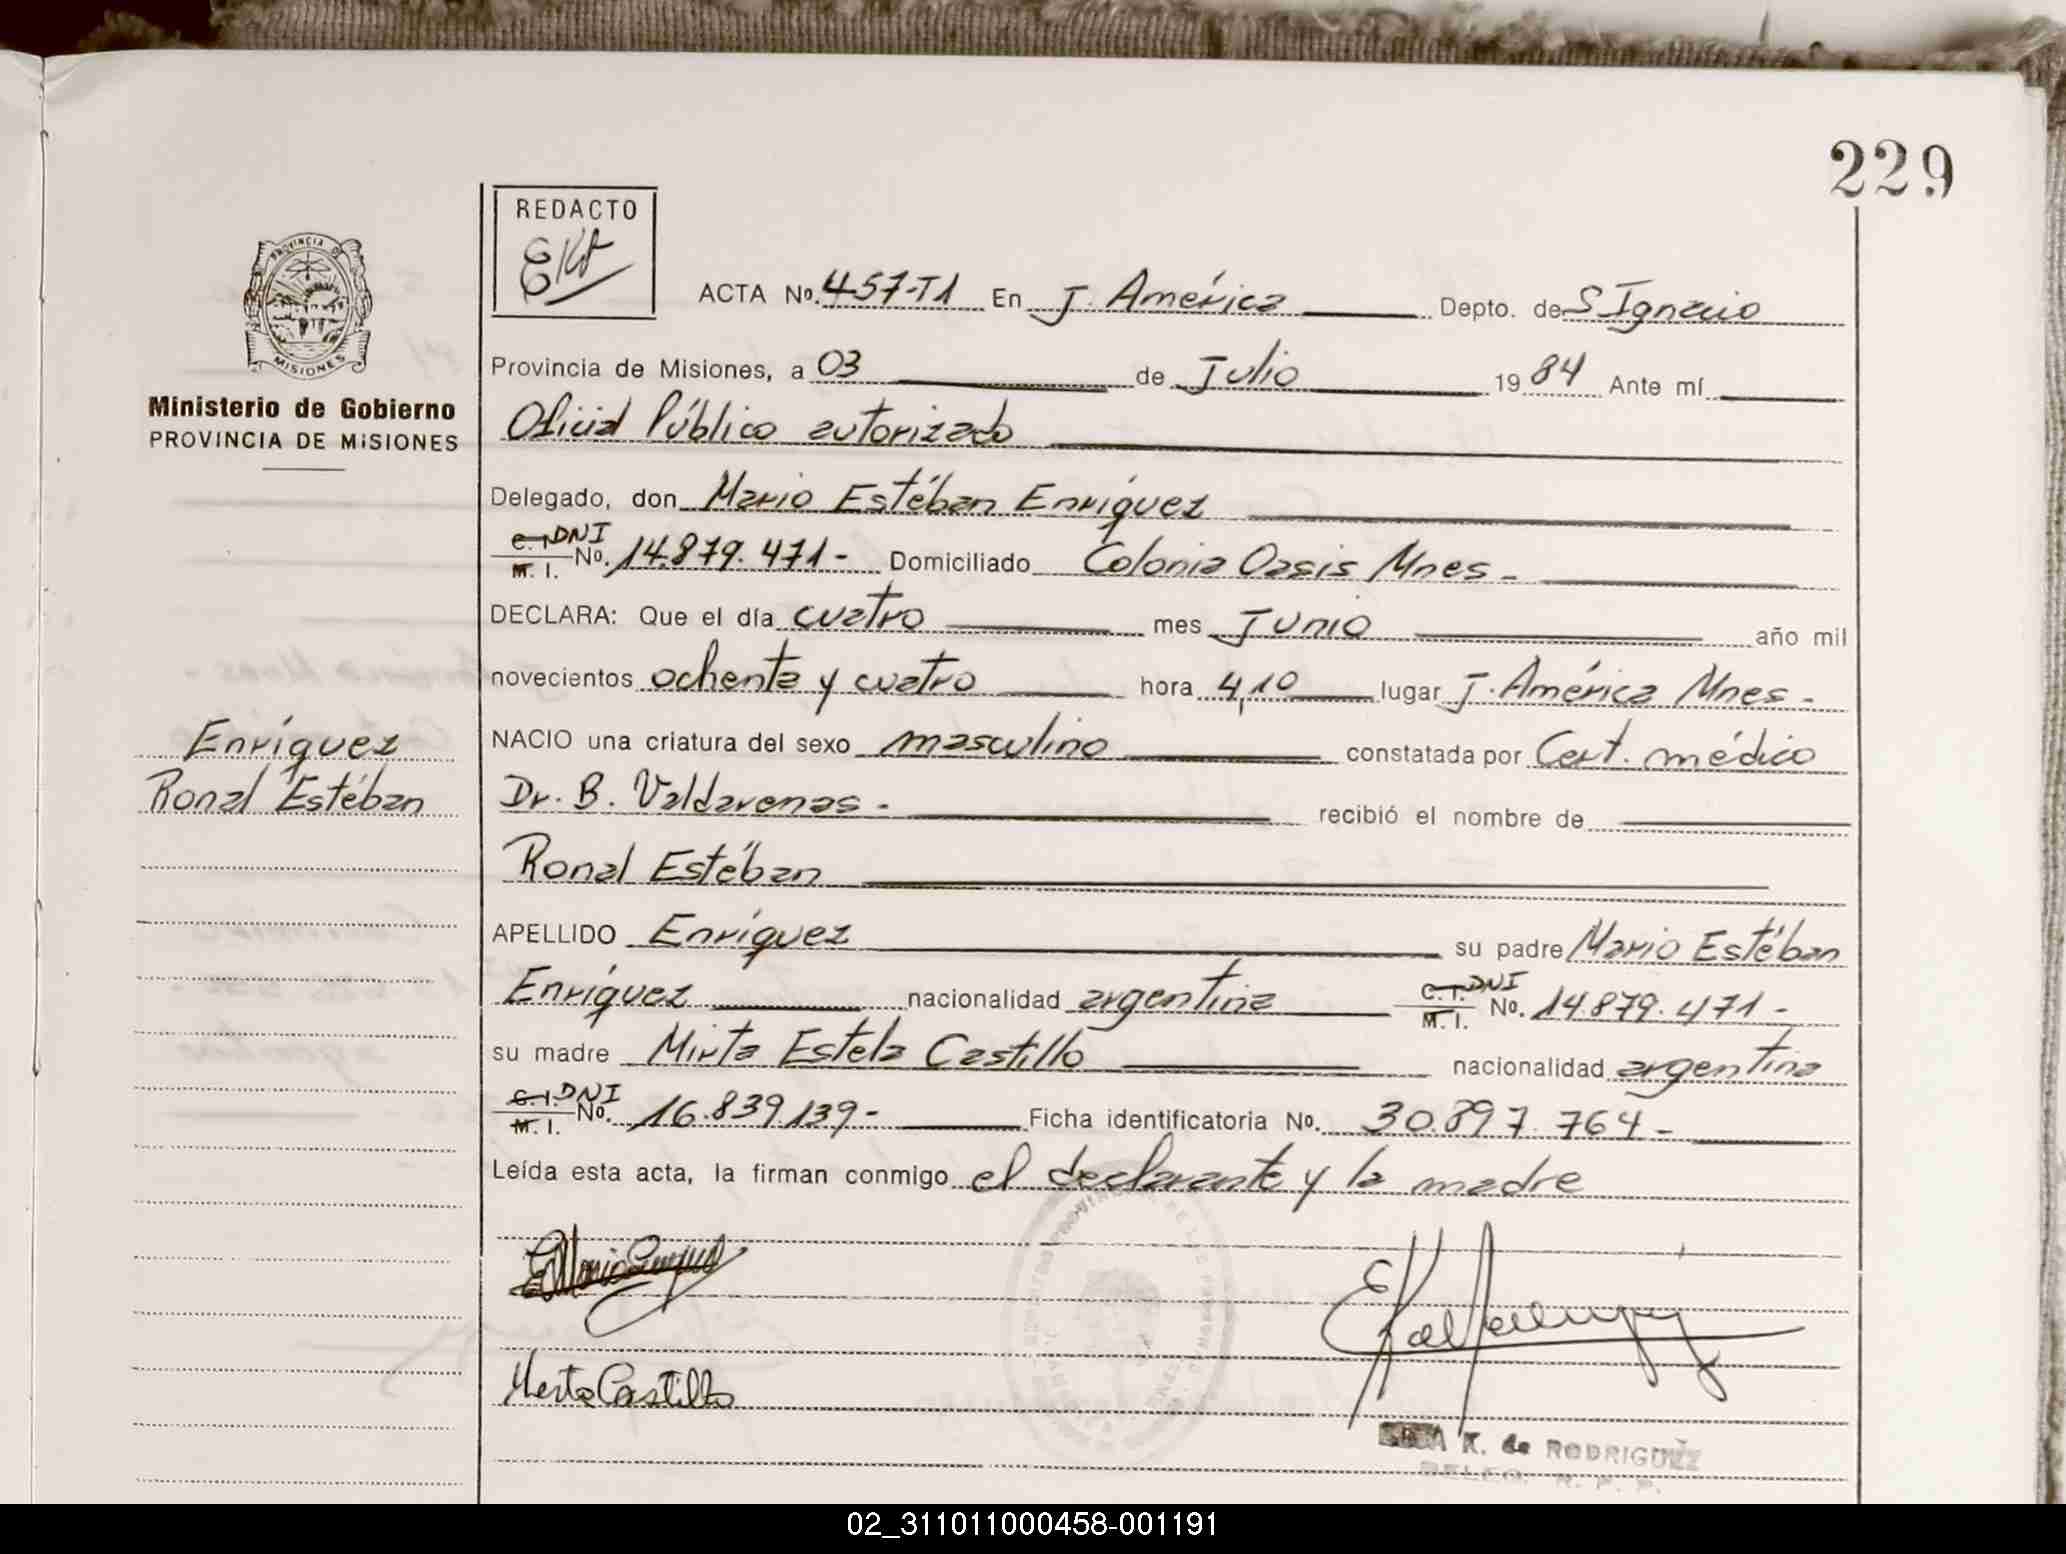 229
REDACTO
PROVINCIA DE
MISIONES
Ministerio de Gobierno
PROVINCIA DE MISIONES
ACTA No. 457-T1 En J. América Depto. de S Ignacio
Provincia de Misiones, a 03 de Julio 1984 Ante mí
Oficial Público autorizado
Delegado, don Mario Estéban Enríquez
C. I. DNI
M. I. No. 14.879.471- Domiciliado Colonia Oasis Mnes-
DECLARA: Que el día cuatro mes Junio año mil
novecientos ochenta y cuatro hora 4,10 lugar J. América Mnes-
NACIO una criatura del sexo masculino constatada por Cert. médico
Dr. B. Valdarenas- recibió el nombre de
Ronal Estéban
Enríquez
Ronal Estéban
APELLIDO Enríquez su padre Mario Estéban
Enríquez nacionalidad argentina C. I. DNI M. I. No. 14.879.471-
su madre Mirta Estela Castillo nacionalidad argentina
C. I. DNI
M. I. No. 16.839.139- Ficha identificatoria No. 30.897.764-
Leída esta acta, la firman conmigo el declarante y la madre
Mirta Castillo
K. de RODRIGUEZ
02_311011000458-001191